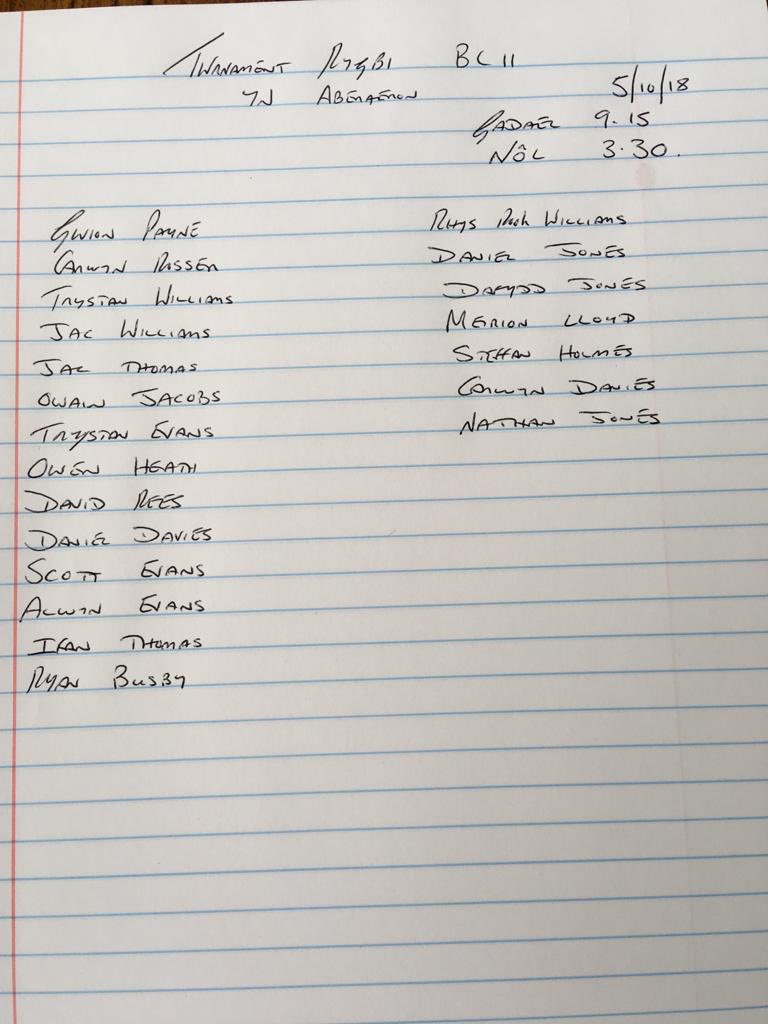 TWRNAMENT RYGBI BL 11
YN ABERAERON
5/10/18
GADAEL 9.15
NÔL 3.30.
GWION PAYNE
CARWYN ROSSER
TRYSTAN WILLIAMS
JAC WILLIAMS
JAC THOMAS
OWAIN JACOBS
TRYSTAN EVANS
OWEN HEATH
DAVID REES
DANIEL DAVIES
SCOTT EVANS
ALWYN EVANS
IFAN THOMAS
RYAN BUSBY
RHYS WILLIAMS
DANIEL JONES
DAFYDD JONES
MEIRION LLOYD
STEFFAN HOLMES
CARWYN DAVIES
NATHAN JONES